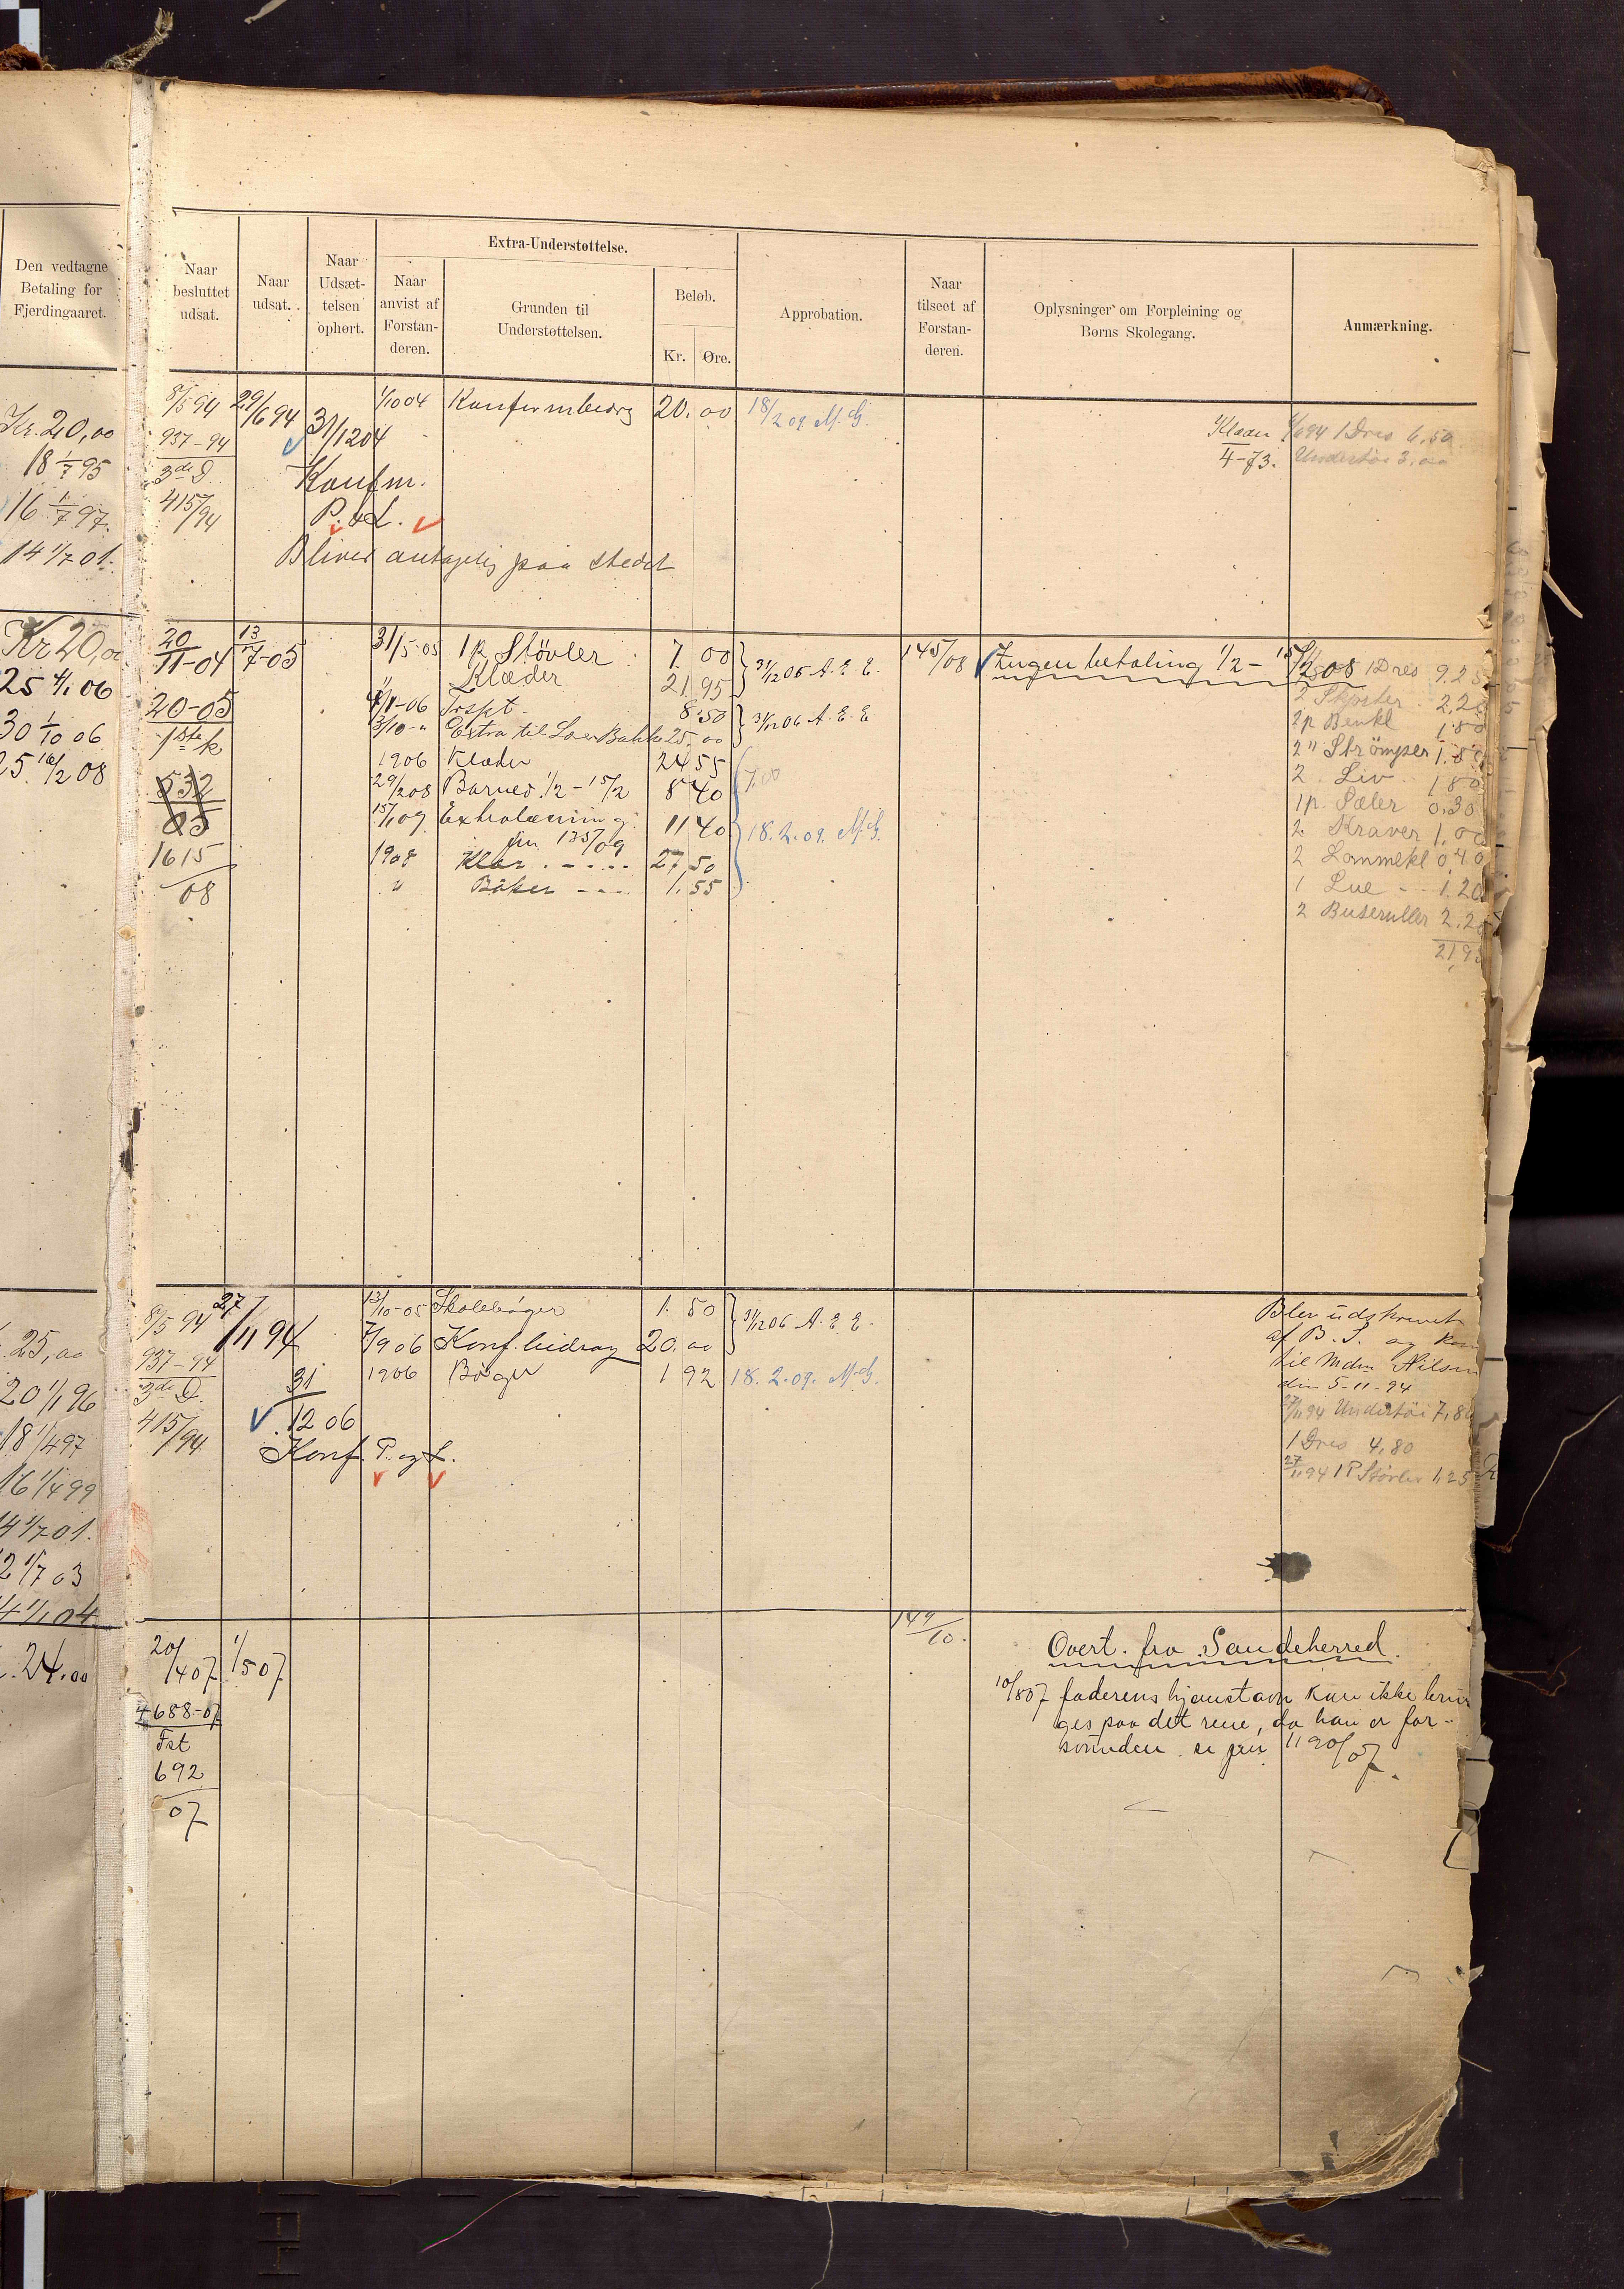 Den vedtagne
Betaling for
Fjerdingaaret.
Naar
besluttet
udsat.
Naar
udsat.
Naar
Udsæt-
telsen
ophørt.
Extra-Understøttelse.
Naar
anvist af
Forstan-
deren.
Grunden til
Understøttelsen.
Beløb.
Kr. Øre.
Approbation.
Naar
tilseet af
Forstan-
deren.
Oplysninger om Forpleining og
Børns Skolegang.
Anmærkning.
Kr. 20,00
18 1/7 95
16 1/7 97.
14 1/7 01.
8/5 94 29/6 94 31/12 04
937-94
3de D.
415/94
Konfm.
P. & L.
Bliver antagelig paa stedet
1/10 04 Konfirmbidrg 20.00 18/2 09. M.G.
Klæder 1/6 94 1 Dres 6,50
4-73. Undertøi 3,00
Kr 20,00
25 1/1 06
30 1/10 06
25. 16/2 08
20/11-04 13/7-05
20-05
1ste k
532/05
1615/08
31/5-05 1 p. Støvler 7.00
Klæder 21.95
31/12 05 A. E. E.
1/1-06 Trspt. 8.50
3/10-" Extra til Lars Bakke 25,00
31/12 06 A. E. E
1906 Klæder 24 55
29/2 08 Barned. 1/2 - 15/2 8 40
7,00
15/1 09 Extralæsning 11 40
jrn 135/09
18. 2. 09. M.G.
1908 Klær 27,50
" Bøker 1.55
145/08 Ingen betaling 1/2 - 15/2 08
1 Dres 9.25
2 Skjorter 2.20
2 p Benkl 1.80
2 " Strømper 1.80
2 Liv 1 80
1 p. Sæler 0.30
2 Kraver 1.00
2 Lommekl 0,40
1 Lue 1.20
2 Buseruller 2.20
21,95
25,00
20 1/1 96
18 1/4 97
16 1/4 99
14 1/7 01.
12 1/7 03
14 1/1 04
8/5 94 27/11 94
937-94
3de D.
415/94
31/12 06
Konf. P. og L.
12/10-05 Skolebøger 1.50
7/9 06 Konf. bidrag 20.00
31/12 06 A. E. E.
1906 Bøger 1 92 18. 2. 09. M.G.
Blev udskrevet
af B. S. og kom
til Mdm Nilsen
din 5-11-94
27/11 94 Undertøi 7,80
1 Dres 4,80
27/11 94 1 P Støvler 1,25
24.00
20/4 07 1/5 07
4688-07
Fst
692/07
149/10.
Overt. fra Sandeherred.
10/8 07 faderens hjemstavn kan ikke brin
ges paa det rene, da han er for-
svunden. se jrn 1190/07.